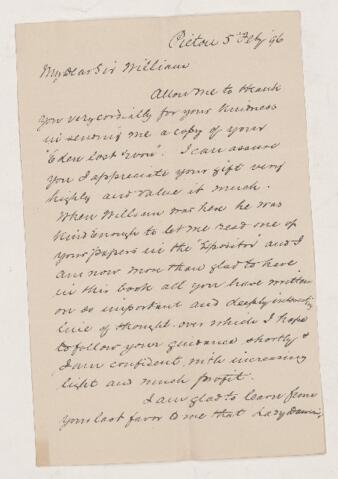 Pictou 5 Feby '96
My Dear Sir William
Allow me to thank
you very cordially for your kindness
in sending me a copy of your
"Eden lost & won". I can assure
you I appreciate your gift very
highly and value it much.
When William was here he was
kind enough to let me read one of
your papers in the "Expositor" and I
am now more than glad to have
in this book all you have written
on so important and deeply interesting
line of thought over which I hope
to follow your guidance shortly &
I am confident, with increasing
light and much profit.
I am glad to learn from
your last favor to me that Lady Dawson,